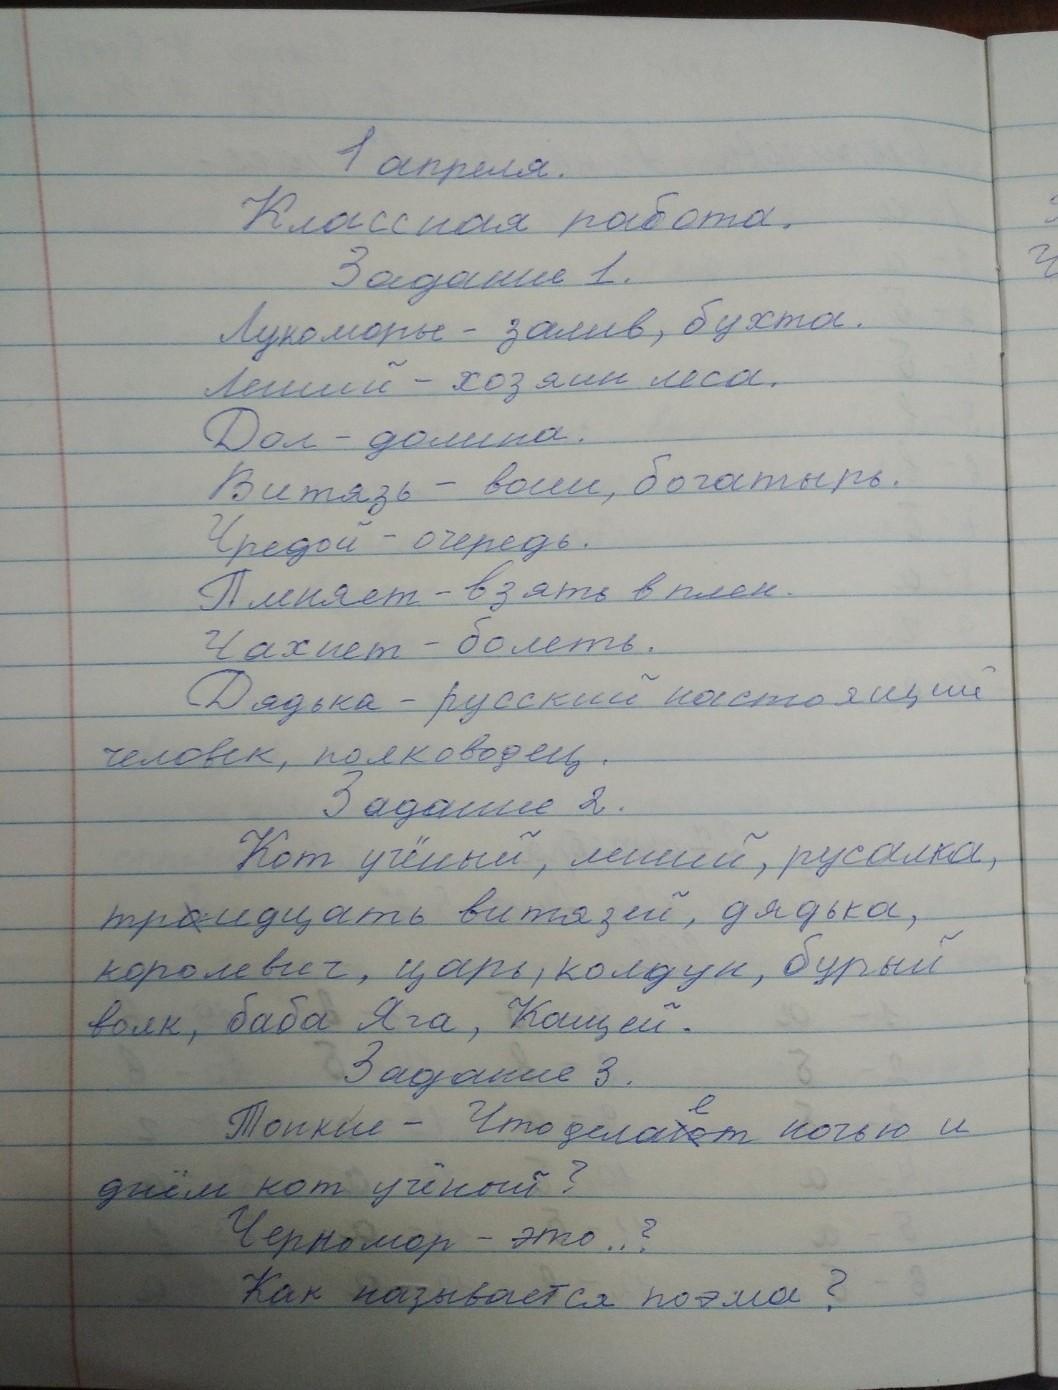 1 апреля.
Классная работа.
Задание 1.
Лукоморье - залив, бухта.
Леший - хозяин леса.
Дол - долина.
Витязь - воин, богатырь.
Чредой - очередь.
Пленяет - взять в плен.
Чахнет - болеть.
Дядька - русский настоящий
человек, полководец.
Задание 2.
Кот учёный, леший, русалка,
тридцать витязей, дядька,
королевич, царь, колдун, бурый
волк, баба Яга, Кащей.
Задание 3.
Тонкие - Что делает ночью и
днём кот учёный?
Черномор - это..?
Как называется поэма?